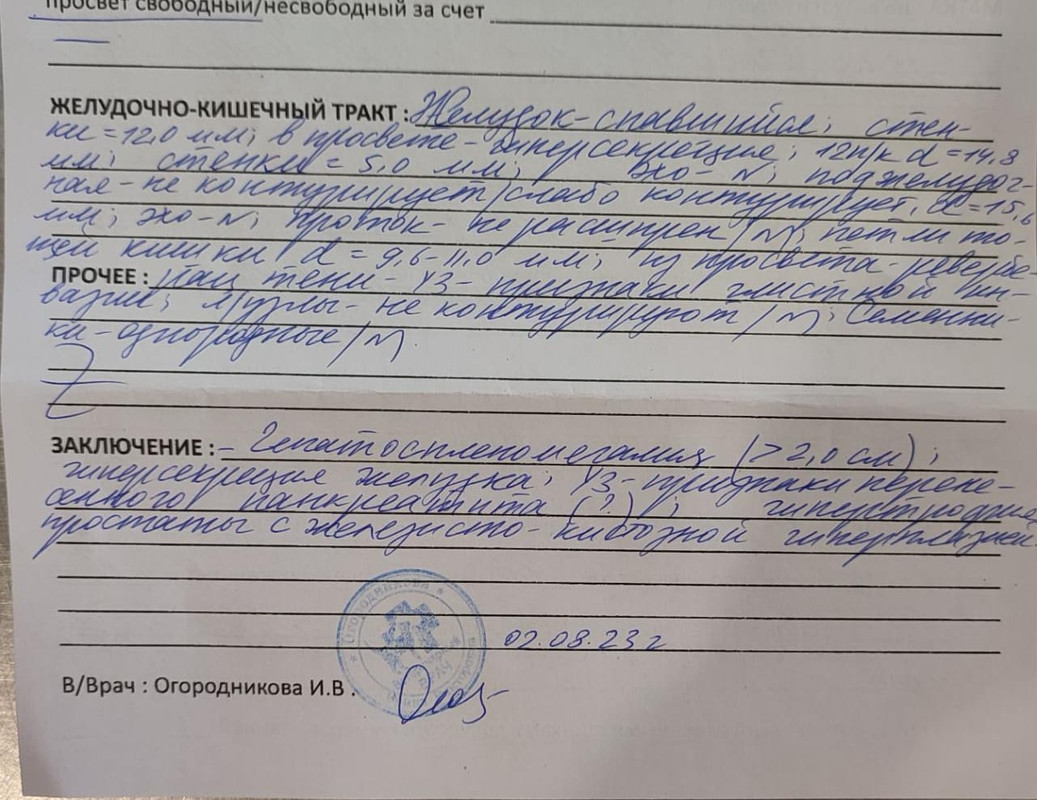 просвет свободный/несвободный за счет
ЖЕЛУДОЧНО-КИШЕЧНЫЙ ТРАКТ : Желудок-спавшийся; стен-
ки = 12,0 мм; в просвете-гиперсекреция; 12п/к d = 14,8
мм; стенки = 5,0 мм; эхо-N; поджелудоч-
ная-не контурирует/слабо контурирует, d = 15,6
мм; эхо-N; проток-не расширен/N; петли то-
щей кишки d = 9,6-11,0 мм; из просвета-ревербе-
ПРОЧЕЕ : тени-УЗ-признаки глистной ин-
вазии; л/узлы-не контурируют/N; Семенни-
ки-однородные/N
ЗАКЛЮЧЕНИЕ : - Гепатоспленомегалия (>2,0 см);
гиперсекреция желудка; УЗ-признаки перене-
сенного панкреатита (?);
простаты с железисто-кистозной гиперплазией.
ОГОРОДНИКОВА
02.08.23 г
В/Врач : Огородникова И.В.